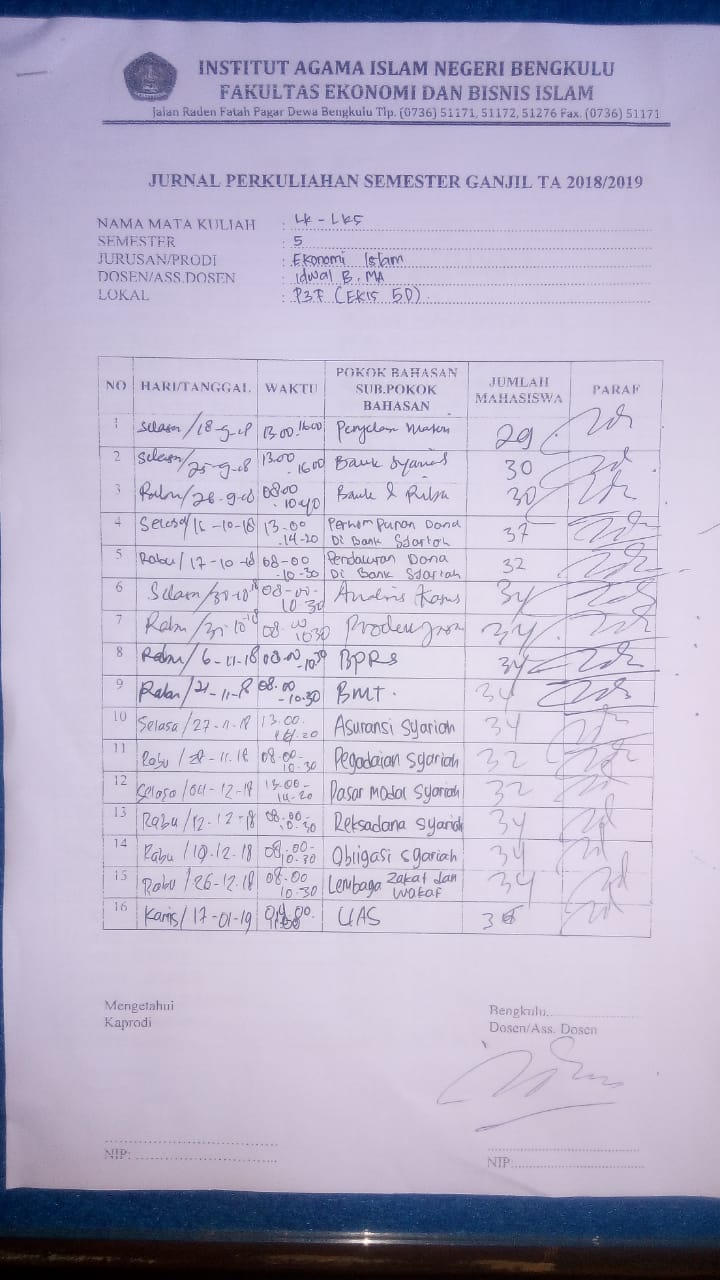 INSTITUT AGAMA ISLAM NEGERI BENGKULU
FAKULTAS EKONOMI DAN BISNIS ISLAM
Jalan Raden Fatah Pagar Dewa Bengkulu Tlp. (0736) 51171, 51172, 51276 Fax. (0736) 51171
JURNAL PERKULIAHAN SEMESTER GANJIL TA 2018/2019
NAMA MATA KULIAH : LK - LKS
SEMESTER : 5
JURUSAN/PRODI : Ekonomi Islam
DOSEN/ASS.DOSEN : Idwal B. MA
LOKAL : (EKIS 5D)
NO HARI/TANGGAL WAKTU POKOK BAHASAN SUB.POKOK BAHASAN JUMLAH MAHASISWA PARAF
1 Selasa/18-9-18 13.00 16.00 29
2 Selasa/25-9-18 13.00 - 16.00 Bank Syariah 30
3 Rabu/26-9-18 08.00 - 10.40 Bank & Riba 30
4 Selasa/16-10-18 13.00 - 14-20 Perhimpunan Dana Di Bank Sdariah 37
5 Rabu/17-10-18 08-00 - 10-30 Dana Di Bank Sdariah 32
6 Selasa/30-10-18 08-00- 10 30 Analisis Kasus 34
7 Rabu/31-10-18 08.00 1030 34
8 Rabu/6-11-18 08.00 - 10.30 BPRS 34
9 Rabu/21-11-18 08.00 - 10.30 BMT. 34
10 Selasa/27-11-18 13.00. Asuransi Syariah 34
11 Rabu/28-11.18 08.00- 10.30 Pegadaian Syariah 32
12 Selasa/04-12-18 13.00- 14-20 Pasar modal Syariah 32
13 Rabu/12-12-18 08.00- 10.30 Reksadana Syariah 34
14 Rabu/19-12-18 08.00- 10.30 Obligasi Syariah 34
15 Rabu/26-12-18 08.00 10.30 Lembaga Zakat dan Wakaf 34
16 Kamis/17-01-19 UAS
Mengetahui
Kaprodi
Bengkulu,
Dosen/Ass. Dosen
NIP:
NIP